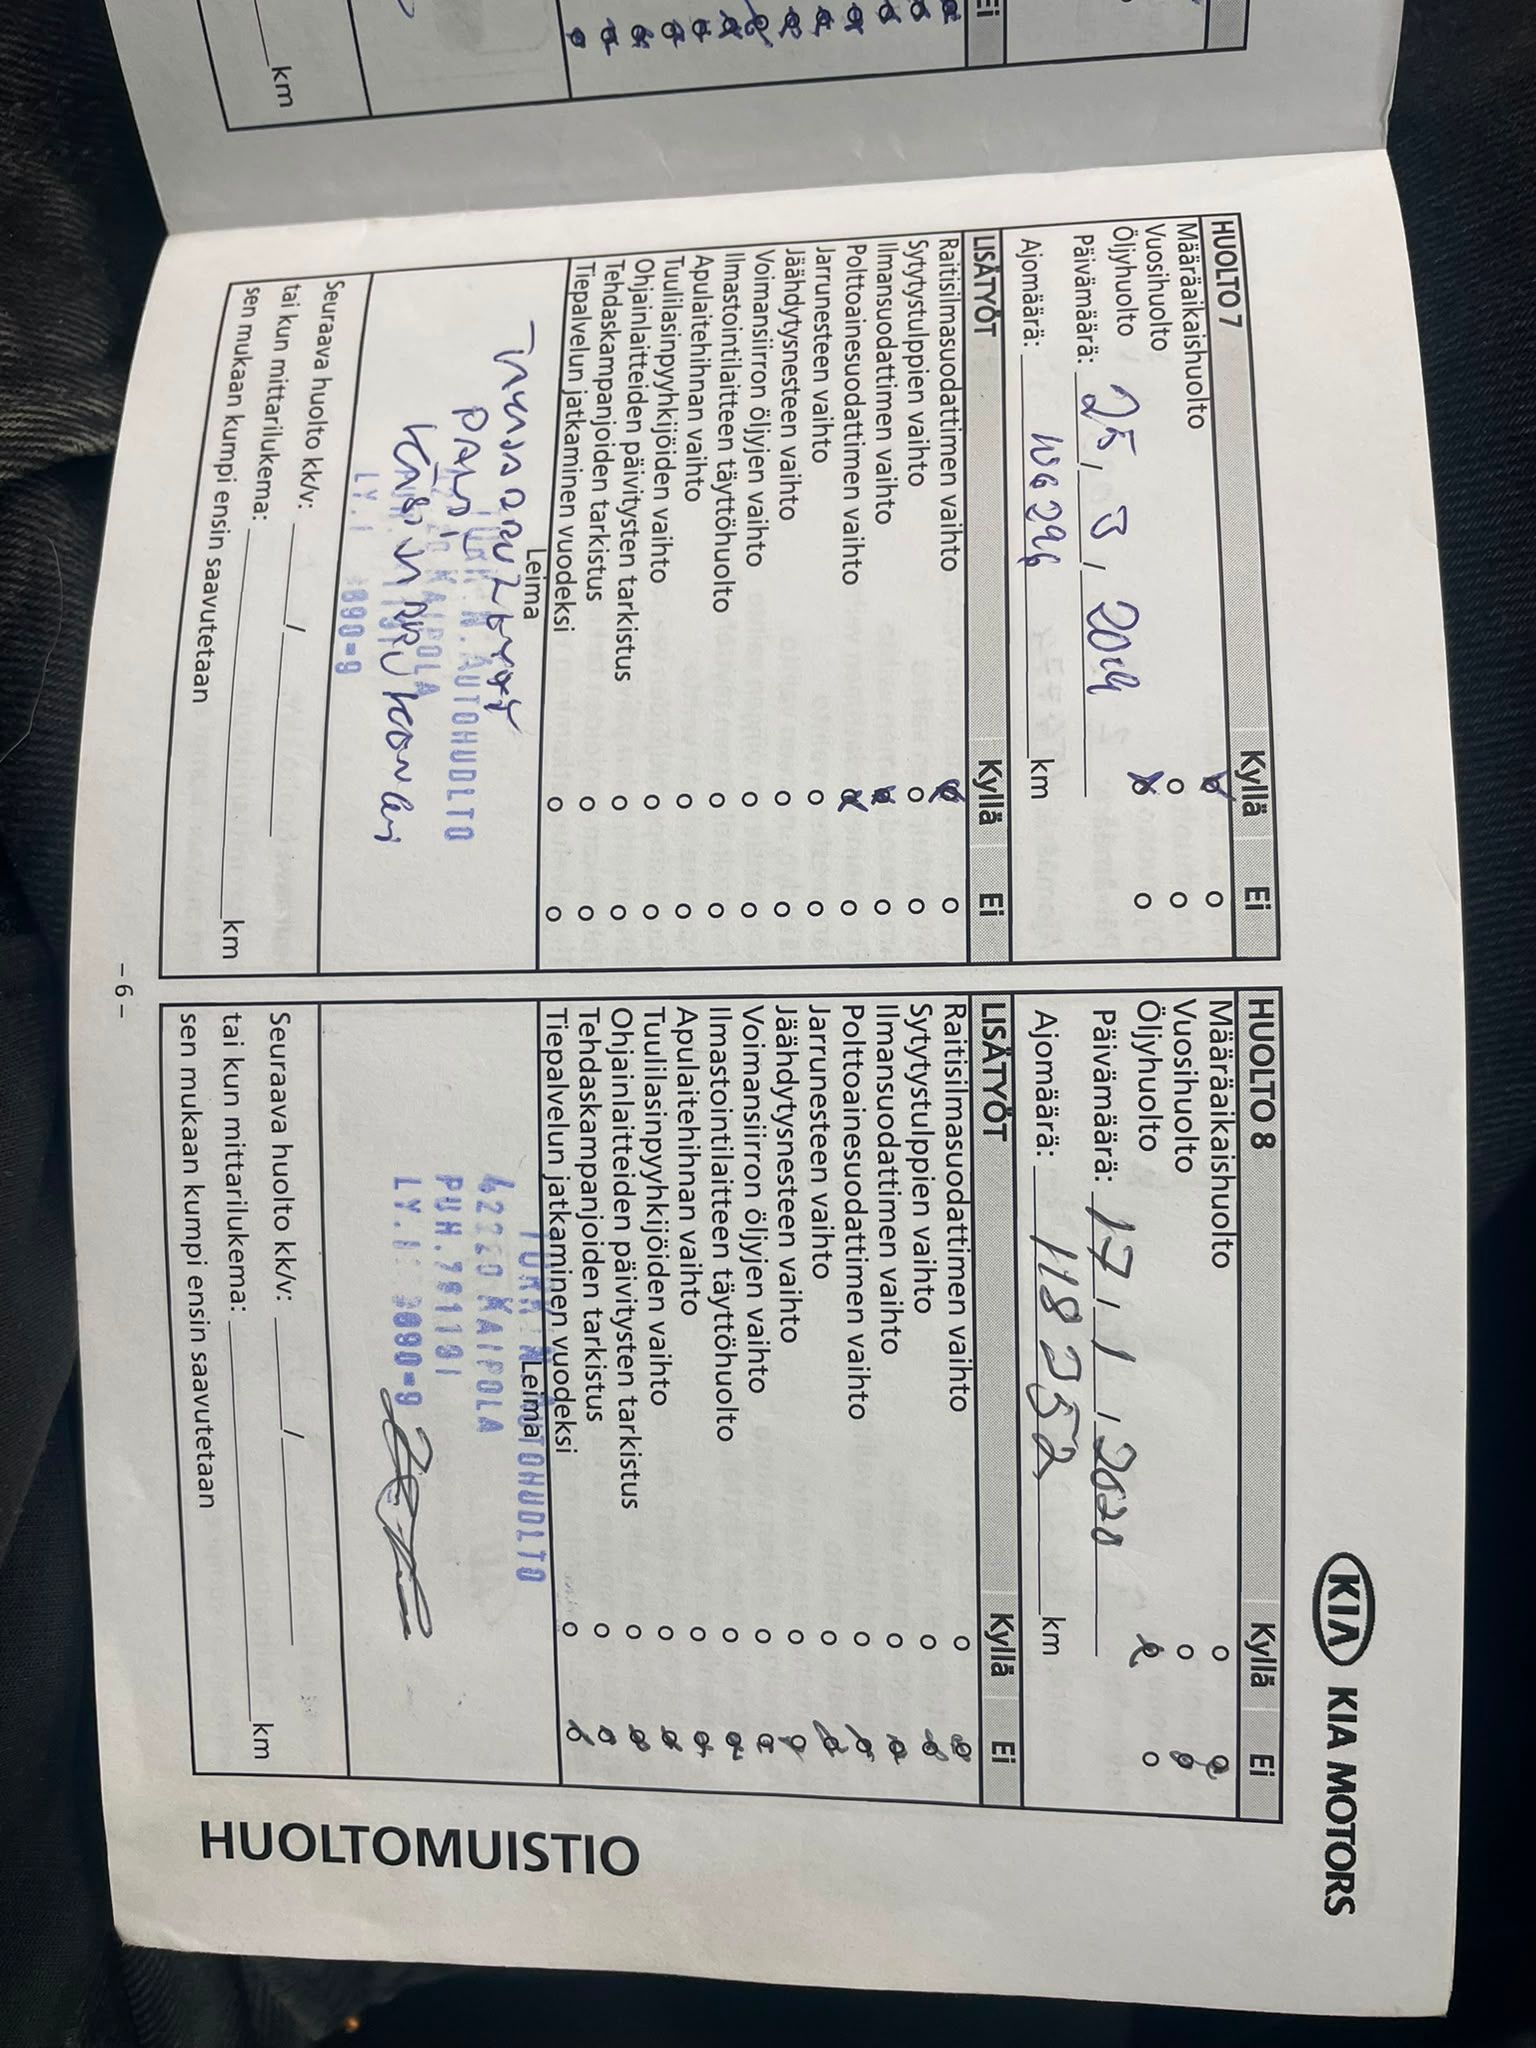 km
Ei
HUOLTO 7 Kyllä Ei
Määräaikaishuolto
Vuosihuolto
Öljyhuolto
Päivämäärä: 25, 3, 2019
Ajomäärä: 106 296 km
LISÄTYÖT Kyllä Ei
Raitisilmasuodattimen vaihto
Sytytystulppien vaihto
Ilmansuodattimen vaihto
Polttoainesuodattimen vaihto
Jarrunesteen vaihto
Jäähdytysnesteen vaihto
Voimansiirron öljyjen vaihto
Ilmastointilaitteen täyttöhuolto
Apulaitehihnan vaihto
Tuulilasinpyyhkijöiden vaihto
Ohjainlaitteiden päivitysten tarkistus
Tehdaskampanjoiden tarkistus
Tiepalvelun jatkaminen vuodeksi
Leima
AUTOHUOLTO
KAIPOLA
LY.
890=9
Seuraava huolto kk/v: /
tai kun mittarilukema: km
sen mukaan kumpi ensin saavutetaan
KIA KIA MOTORS
HUOLTO 8 Kyllä Ei
Määräaikaishuolto
Vuosihuolto
Öljyhuolto
Päivämäärä: 17, 1, 2020
Ajomäärä: 118 252 km
LISÄTYÖT Kyllä Ei
Raitisilmasuodattimen vaihto
Sytytystulppien vaihto
Ilmansuodattimen vaihto
Polttoainesuodattimen vaihto
Jarrunesteen vaihto
Jäähdytysnesteen vaihto
Voimansiirron öljyjen vaihto
Ilmastointilaitteen täyttöhuolto
Apulaitehihnan vaihto
Tuulilasinpyyhkijöiden vaihto
Ohjainlaitteiden päivitysten tarkistus
Tehdaskampanjoiden tarkistus
Tiepalvelun jatkaminen vuodeksi
Leima
AUTOHUOLTO
42220 KAIPOLA
PUH.761131
LY. 890=9
Seuraava huolto kk/v: /
tai kun mittarilukema: km
sen mukaan kumpi ensin saavutetaan
HUOLTOMUISTIO
– 6 –